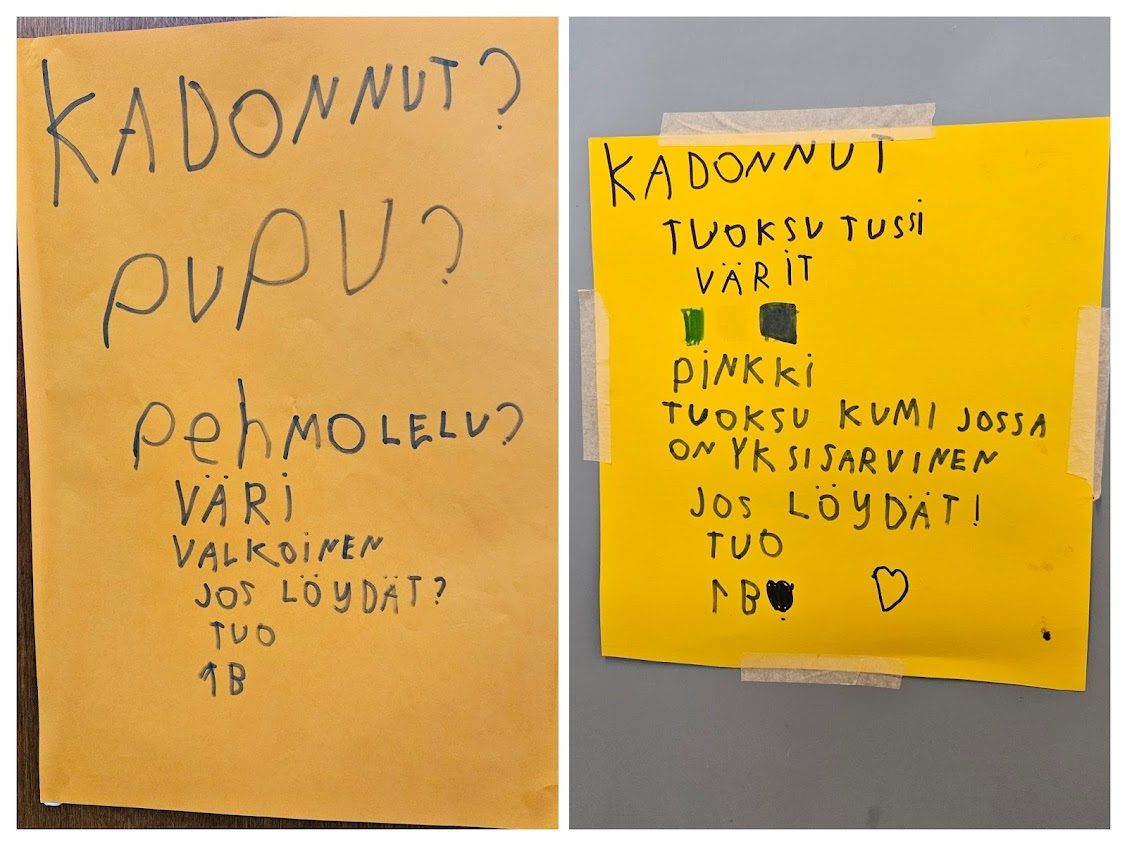 KADONNUT?
PUPU?
pehMOLELU?
VÄRI
VALKOINEN
JOS LÖYDÄT?
TUO
1B
KADONNUT
TUOKSU TUSSI
VÄRIT
PINKKI
TUOKSU KUMI JOSSA
ON YKSISARVINEN
JOS LÖYDÄT!
TUO
1B